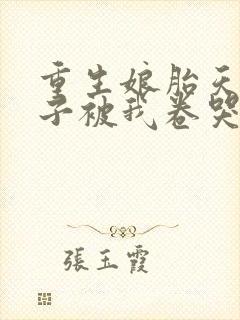 重生娘胎天
子被我卷哭
張玉霞